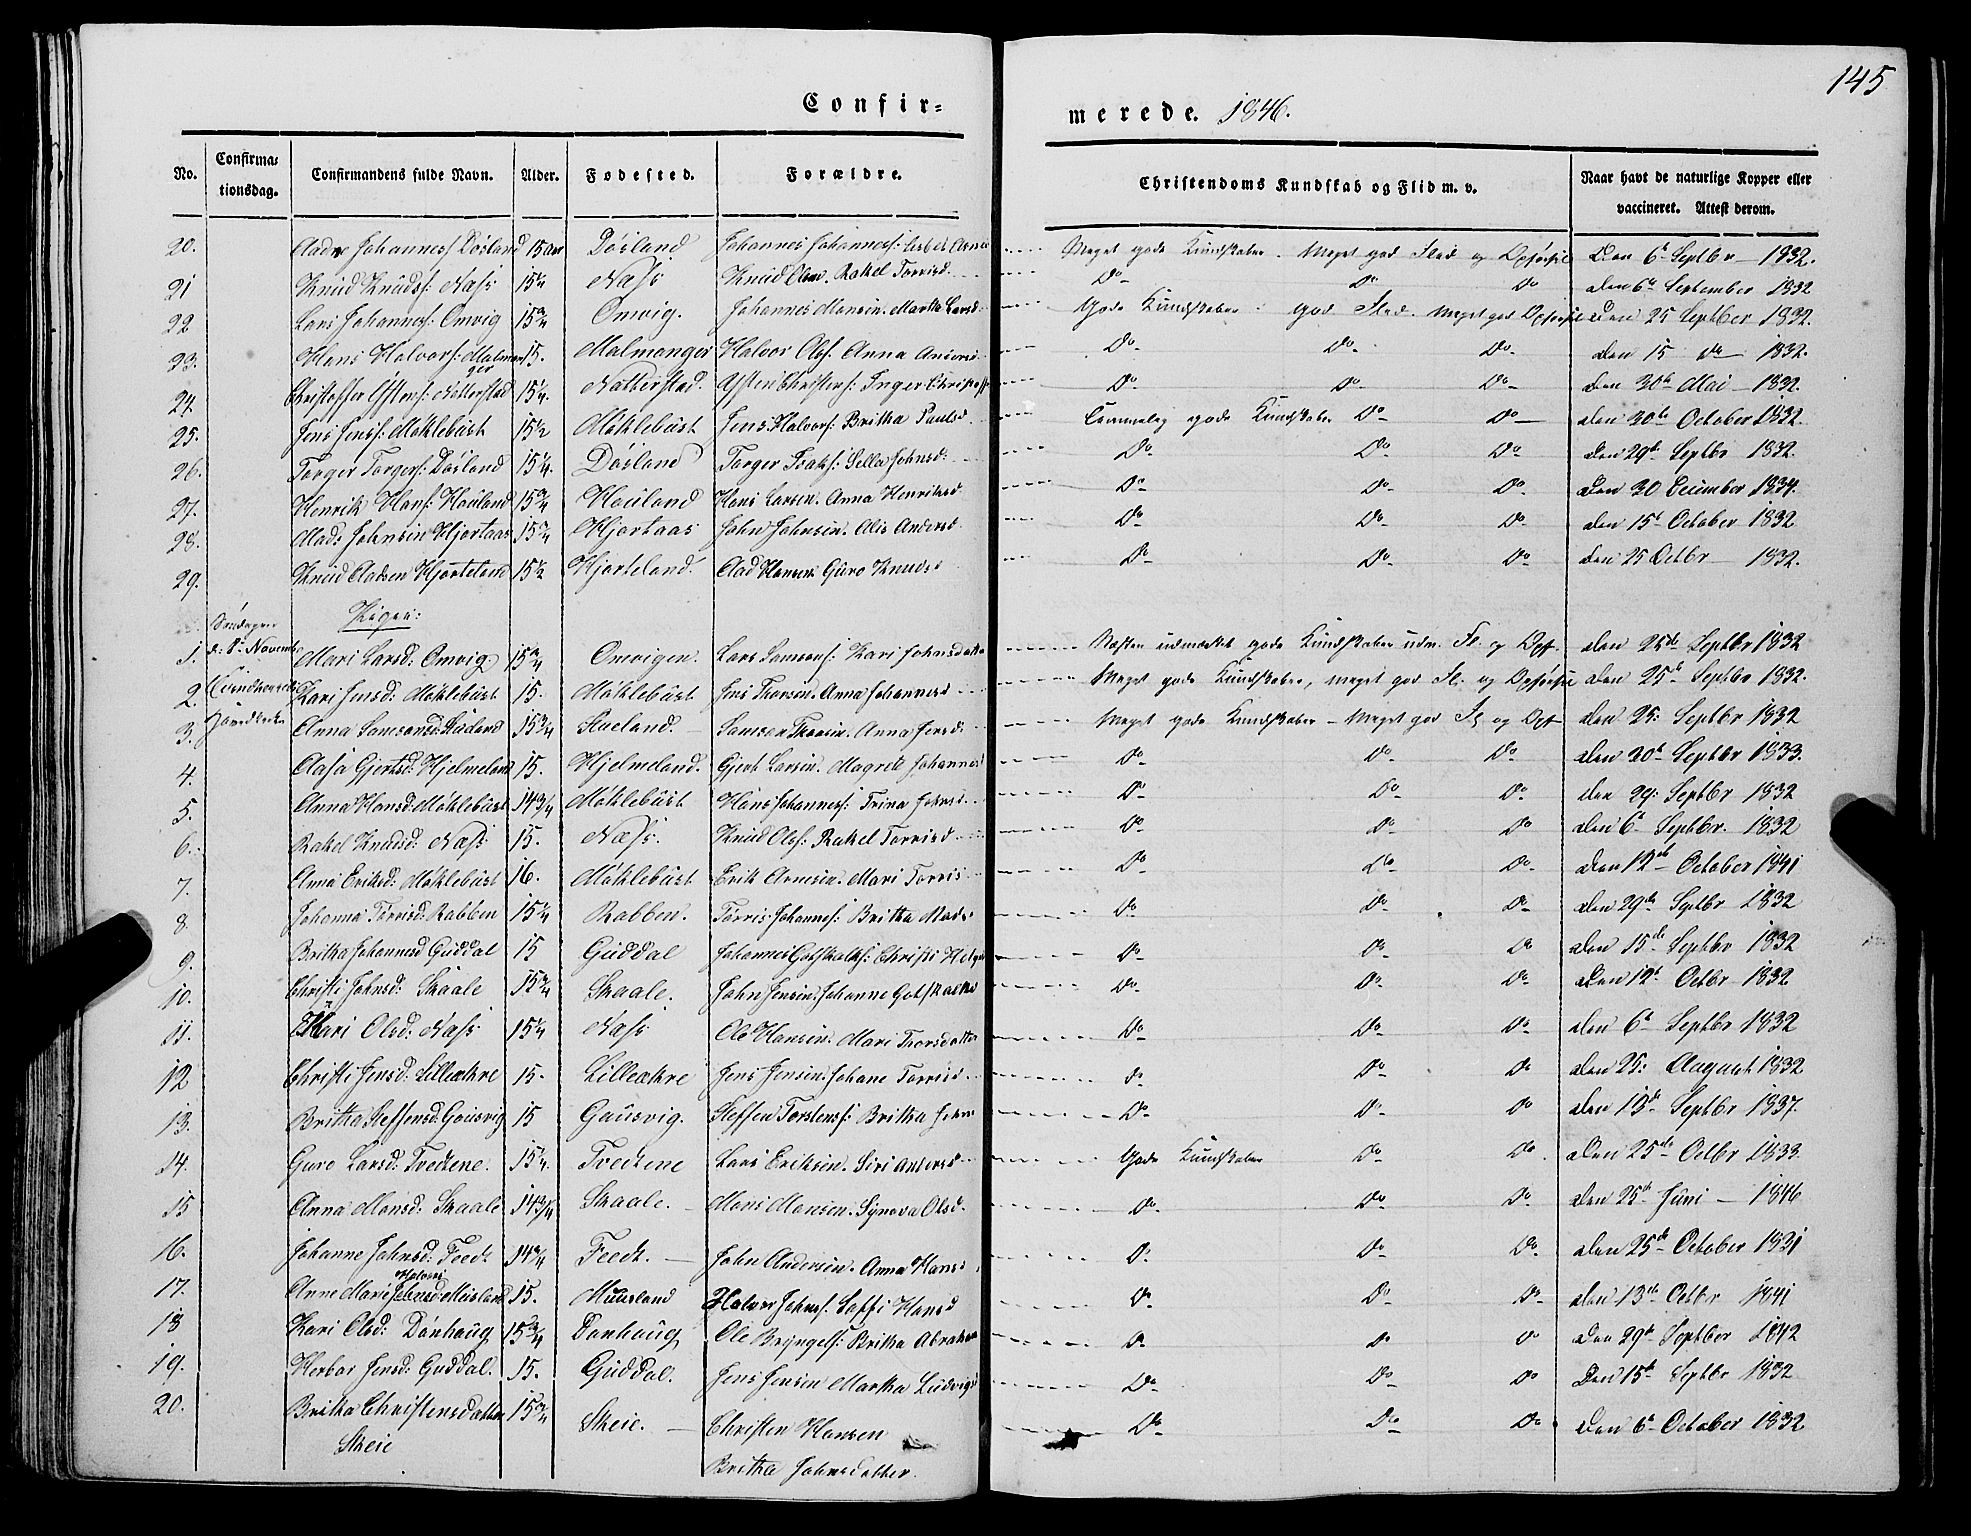 145
Confir-
merede. 1846.
No. Confirmationsdag. Confirmandens fulde Navn. Alder. Fødested. Forældre. Christendoms Kundskab og Flid m. v. Naar havt de naturlige Kopper eller vaccineret. Attest derom.
20. Johanness Døsland 15 Aar Døsland Johannes Johanness: Meget gode Kundskaber. Meget god Flid og Opførsel Den 6te Septbr 1832.
21 Knud Knuds: Næss 15¼ Næss Knud Olsn. Rakel Torrisd Do Do Do den 6te September 1832
22 Lars Johanness: Omvig 15¾ Omvig. Johannes Monsen. Martha Larsd Gode Kundskaber god Flid. Meget god Opførsel Den 25 Septber 1832.
23. Hans Halvors: Malmanger 15. Malmanger Halvor Ols. Anna Do Do Do den 15 do 1832.
24. Christoffer Østens: Natterstad 15¼. Natterstad. Østen Christens: Inger Do Do Do den 30te Mai 1832.
25. Jens Jens: Møklebust 15½ Møklebust Jens Halvors: Britha Paulsd. Temmelig gode Kundskaber Do Do den 20de October 1832.
26. Torger Torgers: Døsland 15¼. Døsland Torger Isaks: Johnsd: Do Do Do den 29de Septbr 1832.
27. Henrik Hans: Houland 15¾ Houland Hans Larsen. Anna Henriksd Do Do Do den 30 December 1834.
28. Mads Johnsen Hjortaas 15¾ Hjortaas John Johnsen. Andersd. Do Do Do den 15d October 1832
29. Knud Aadsen Hjorteland 15½ Hjorteland. Aad Hansen Guro Knudsd Do Do Do den 25 Octbr 1832.
Piger:
1. Søndagen d: 8de Novembr Mari Larsd: Omvig 15¾ Omvigen. Lars Samsons: Kari Johnsdatter Næsten udmærket gode Kundskaber udm. Fl. og Opf. den 25de Septbr 1832
2. Kari Jensd: Møklebust 15. Møklebust Jens Thorsen. Anna Johannesd Meget gode Kundskaber, meget god Fl. og Opførsel den 25de Septbr 1832.
3. Hovedkirke Anna Samsonsd: 15¾ Samson Anna Jensd: Meget gode Kundskaber Meget god Fl og Opf den 25: Septbr 1832
4. Aasa Gjertsd: Hjelmeland 15. Hjelmeland. Gjert Larsen. Magrete Johannesd Do Do Do den 20d Septbr 1833.
5. Anna Hansd: Møklebust 14¾ Møklebust Hans Johanness: Do Do Do den 29: Septbr 1832
6. Rakel Knudsd: Næss 15. Næss. Knud Ols: Rakel Torrisd Do Do Do den 6d Septbr. 1832
7. Anna Eriksd: Møklebust 16. Møklebust Erik Arnesen. Mari Torris Do Do Do den 12de October 1841
8. Johanna Torrisd: Rabben 15¼ Rabben. Torris Johanness: Britha Mads Do Do Do den 29de Septbr 1832
9. Britha Johannesd Guddal 15 Guddal Johannes Gotskalks: Christi Do Do Do den 15de Septbr 1832
10. Christi Johnsd: Skaale 15¾ Skaale. John Jensen. Johanne Gotskalks Do Do Do den 12d Octbr 1832
11. Kari Olsd: Næss 15¼ Næss Ole Hansen. Mari Thorsdatter Do Do Do den 6d Septbr 1832
12 Christi Jensd: Lilleækre 15. Lilleækre Jens Jensen. Johane Torrisd Do Do Do den 25: August 1832
13. Britha Steffensd: Gousvig 15 Gausvig. Steffen Torstens: Britha Do Do Do den 13de Septbr 1837.
14. Guro Larsd: Tvedtene. 15¼. Tvedtene Lars Eriksen. Siri Andersd Gode Kundskaber Do Do den 25de Octbr 1833.
15 Anna Monsd: Skaale 14¾ Skaale. Mons Monsen. Synova Olsd. Do Do Do den 25de Juni 1846
16. Johanne Johnsd: Feedt 14¾ Feedt. John Andersen. Anna Hansd Do Do Do den 25de October 1831
Halvors
17. Anne Marie Johnsd Muusland 15. Muusland Halvor Johns: Hansd Do Do Do den 13de Octbr 1841
18 Kari Olsd: Dønhaug 15¾ Dønhaug Ole Brÿngels: Britha Abraham Do Do Do den 29de Septber 1842
19. Herbor Jensd: Guddal. 15. Guddal. Jens Jensen Martha Ludvigsd Do Do Do Den 15de Septbr 1832
20. Britha Christensdatter 15¾ Skeie. Christen Hansen Do Do Do den 6d October 1832
Skeie Britha Johnsdatter.